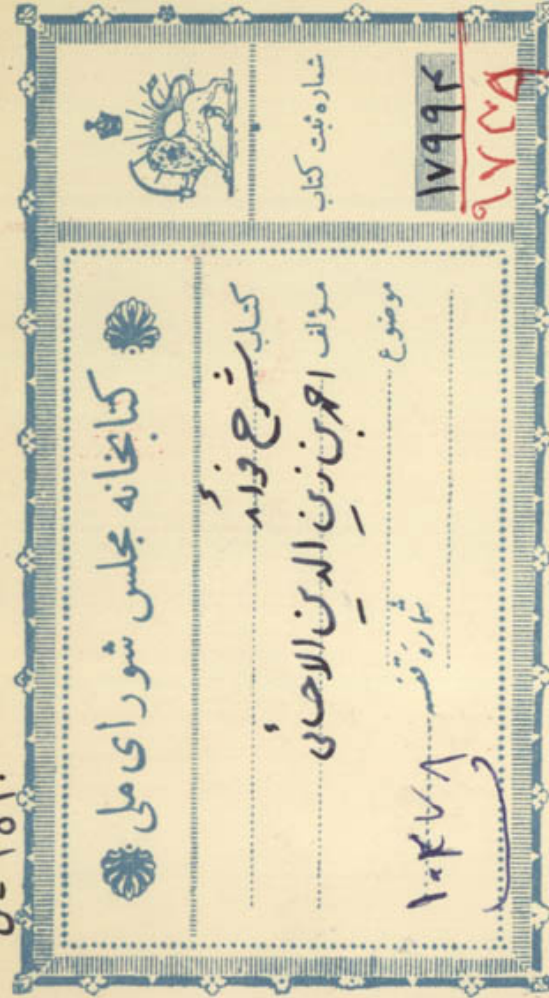 کتابخانه مجلس شورای ملی
کتاب شرح فوائد
مؤلف احمد بن زین الدین الاحسائی
موضوع
شماره قفسه ۱۰۴۷۸
شماره ثبت کتاب
۱۷۹۹۴